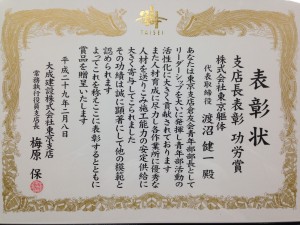 TAISEI
表彰状
支店長表彰 功労賞
株式会社東京躯体
代表取締役 渡沼健一 殿
あなたは東京支店倉友会青年部部長として
リーダーシップを大いに発揮し青年部活動の
活性化に大きく貢献されております
また人材育成に尽力し各作業所に優秀な
人材を送りこみ施工能力の安定供給に
大きく寄与してこられました
その功績は誠に顕著にして他の模範と
認められます
よってこれを称えここに表彰するとともに
賞品を贈呈いたします
平成二十九年二月八日
大成建設株式会社東京支店
常務執行役員支店長
梅原 保